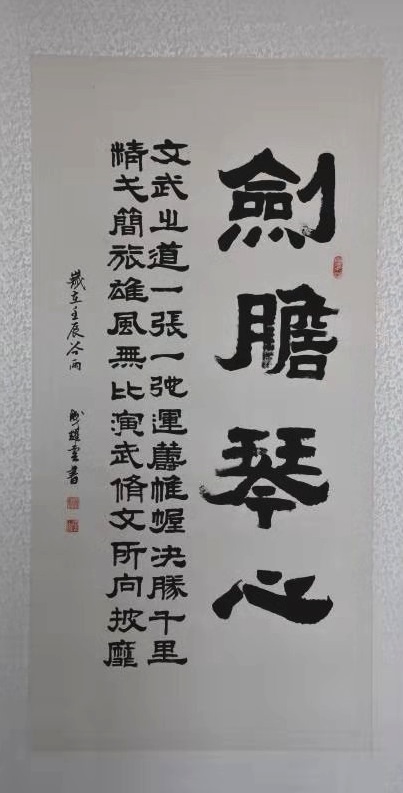 劍膽琴心
文武之道一張一弛運籌帷幄決勝千里
簡旅雄風無比演武脩文所向披靡
歲在壬辰谷雨
書